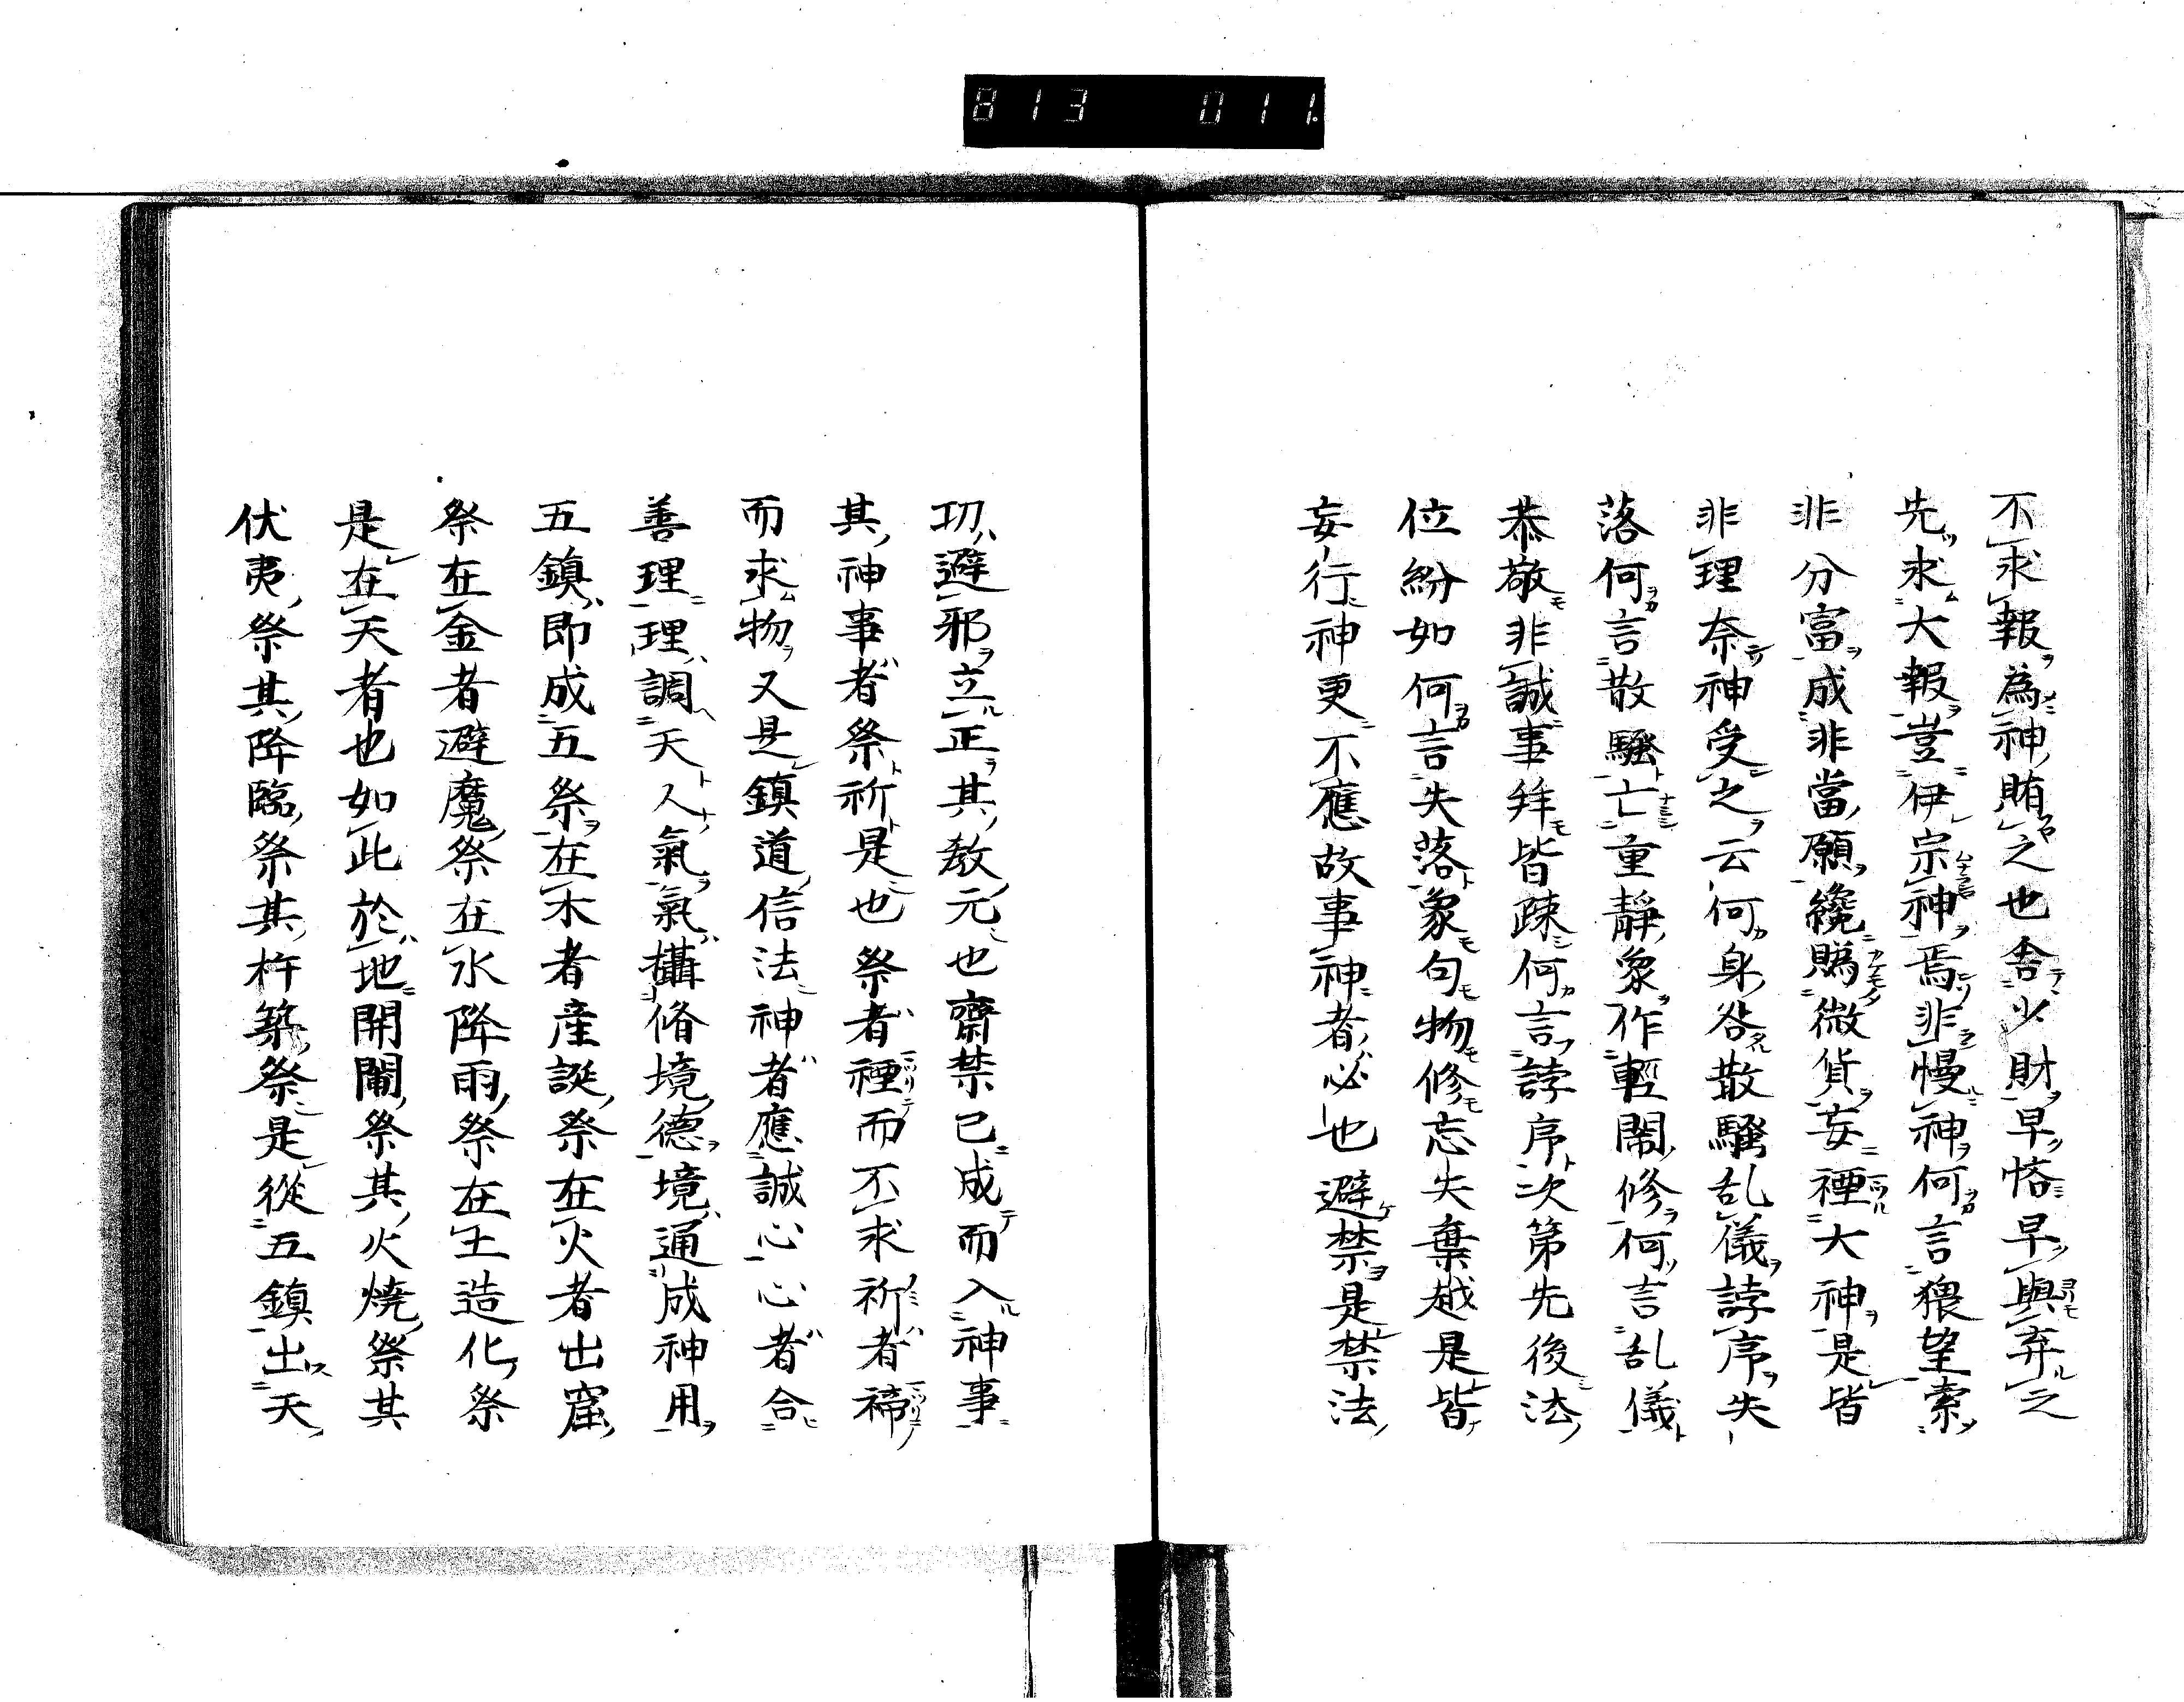 813 011.
不求報為神賄之也舎少財早悋早與弃之
先求大報豈伊宗神焉非慢神何言猥望索
非分富成非當願纔賜微貨妄禋大神是皆
非理奈神受之云何身咎散騷乱儀誖序失
落何言散騷亡重靜象作輕閙修何言乱儀
恭敬非誠事拜皆疎何言誖序次第先後法
位紛如何言失落象句物修忘失棄越是皆
妄行神更不應故事神者必也避禁是禁法
功避邪立正其教元也齋禁已成而入神事
其神事者祭祈是也祭者禋而不求祈者禘
而求物又是鎮道信法神者應誠心心者合
善理理調天人氣氣攝脩境德境通成神用
五鎮即成五祭在木者産誕祭在火者出窟
祭在金者避魔祭在水降雨祭在王造化祭
是在天者也如此於地開闢祭其火焼祭其
伏夷祭其降臨祭其杵築祭是從五鎮出天